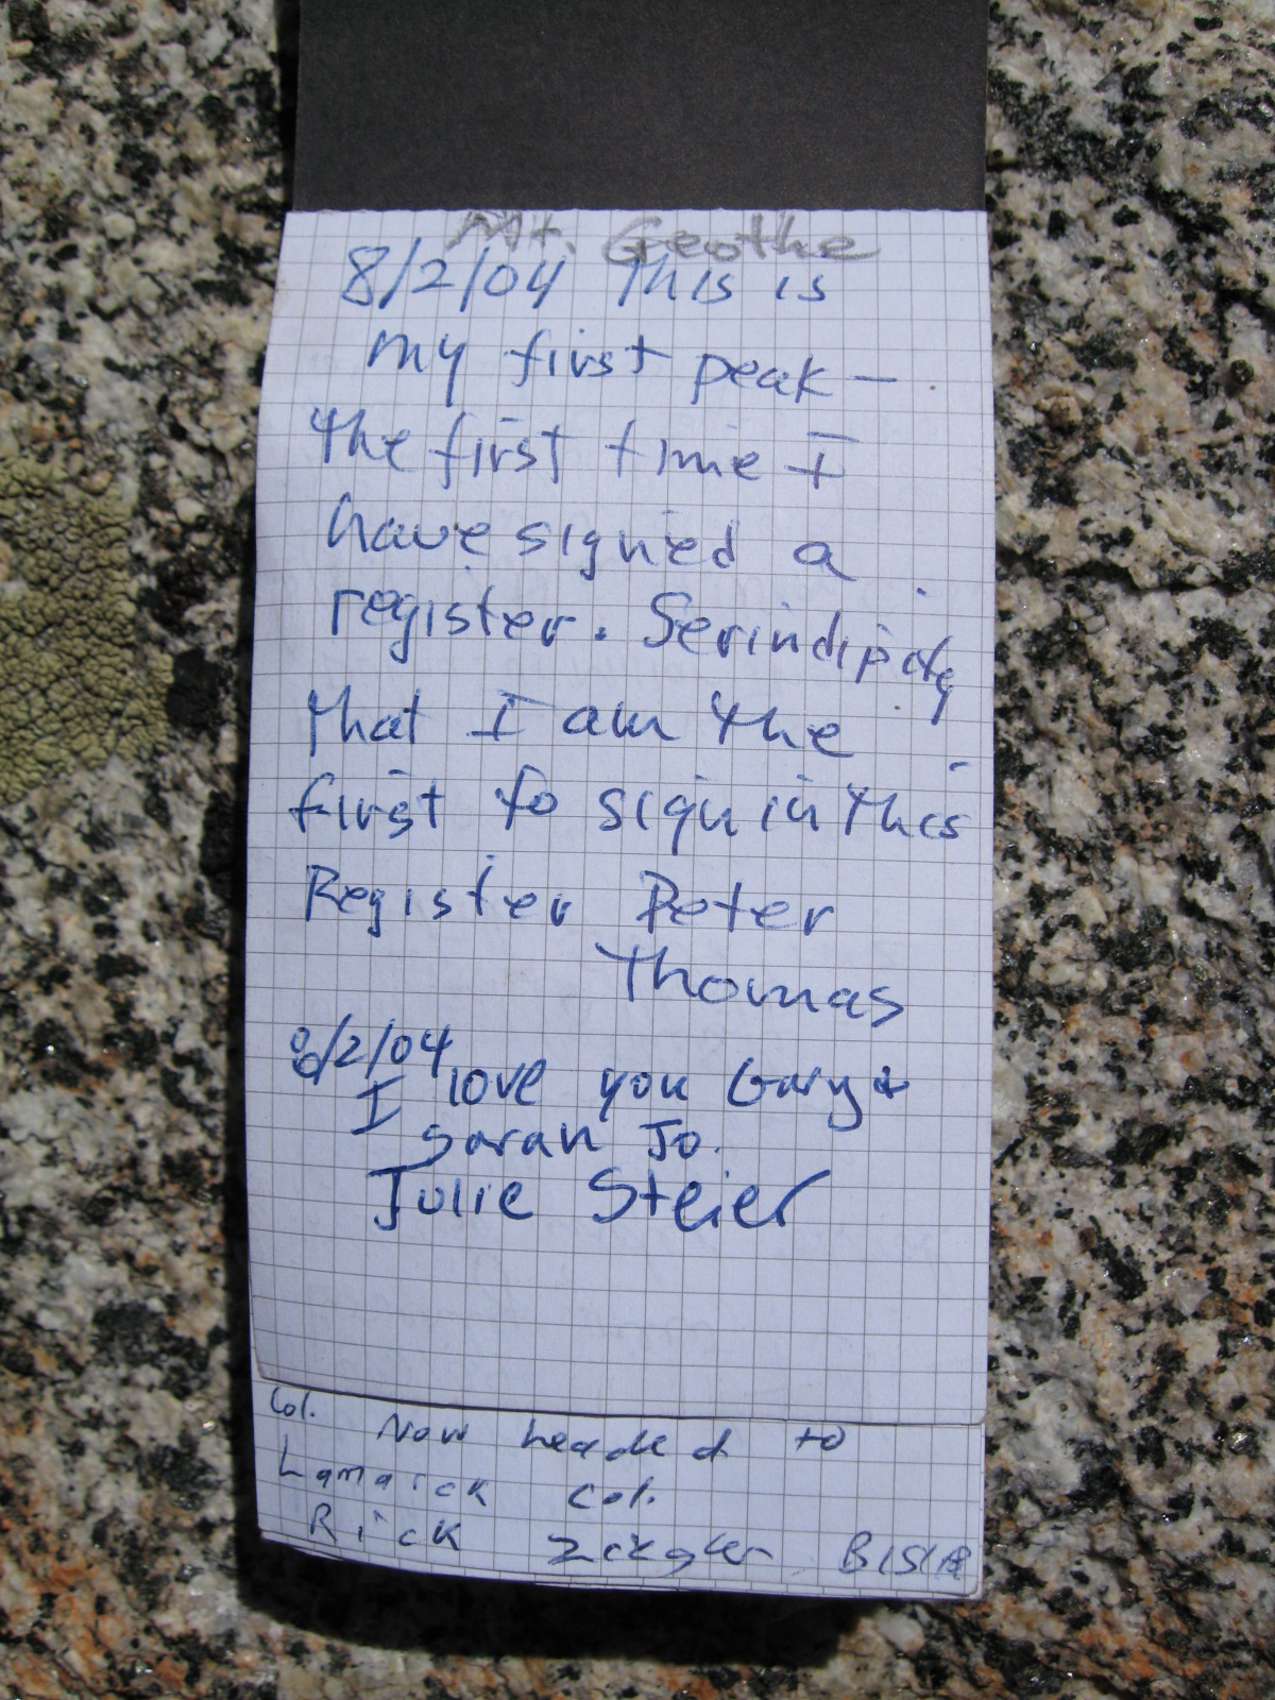 Mt. Geothe
8/2/04 This is
my first peak —
The first time I
have signed a
register. Serindipity
that I am the
first to sign in this
Register Peter
Thomas
8/2/04
I love you Gary &
Sarah Jo.
Julie Steier
Col. Now headed to
Lamarck Col.
Rick